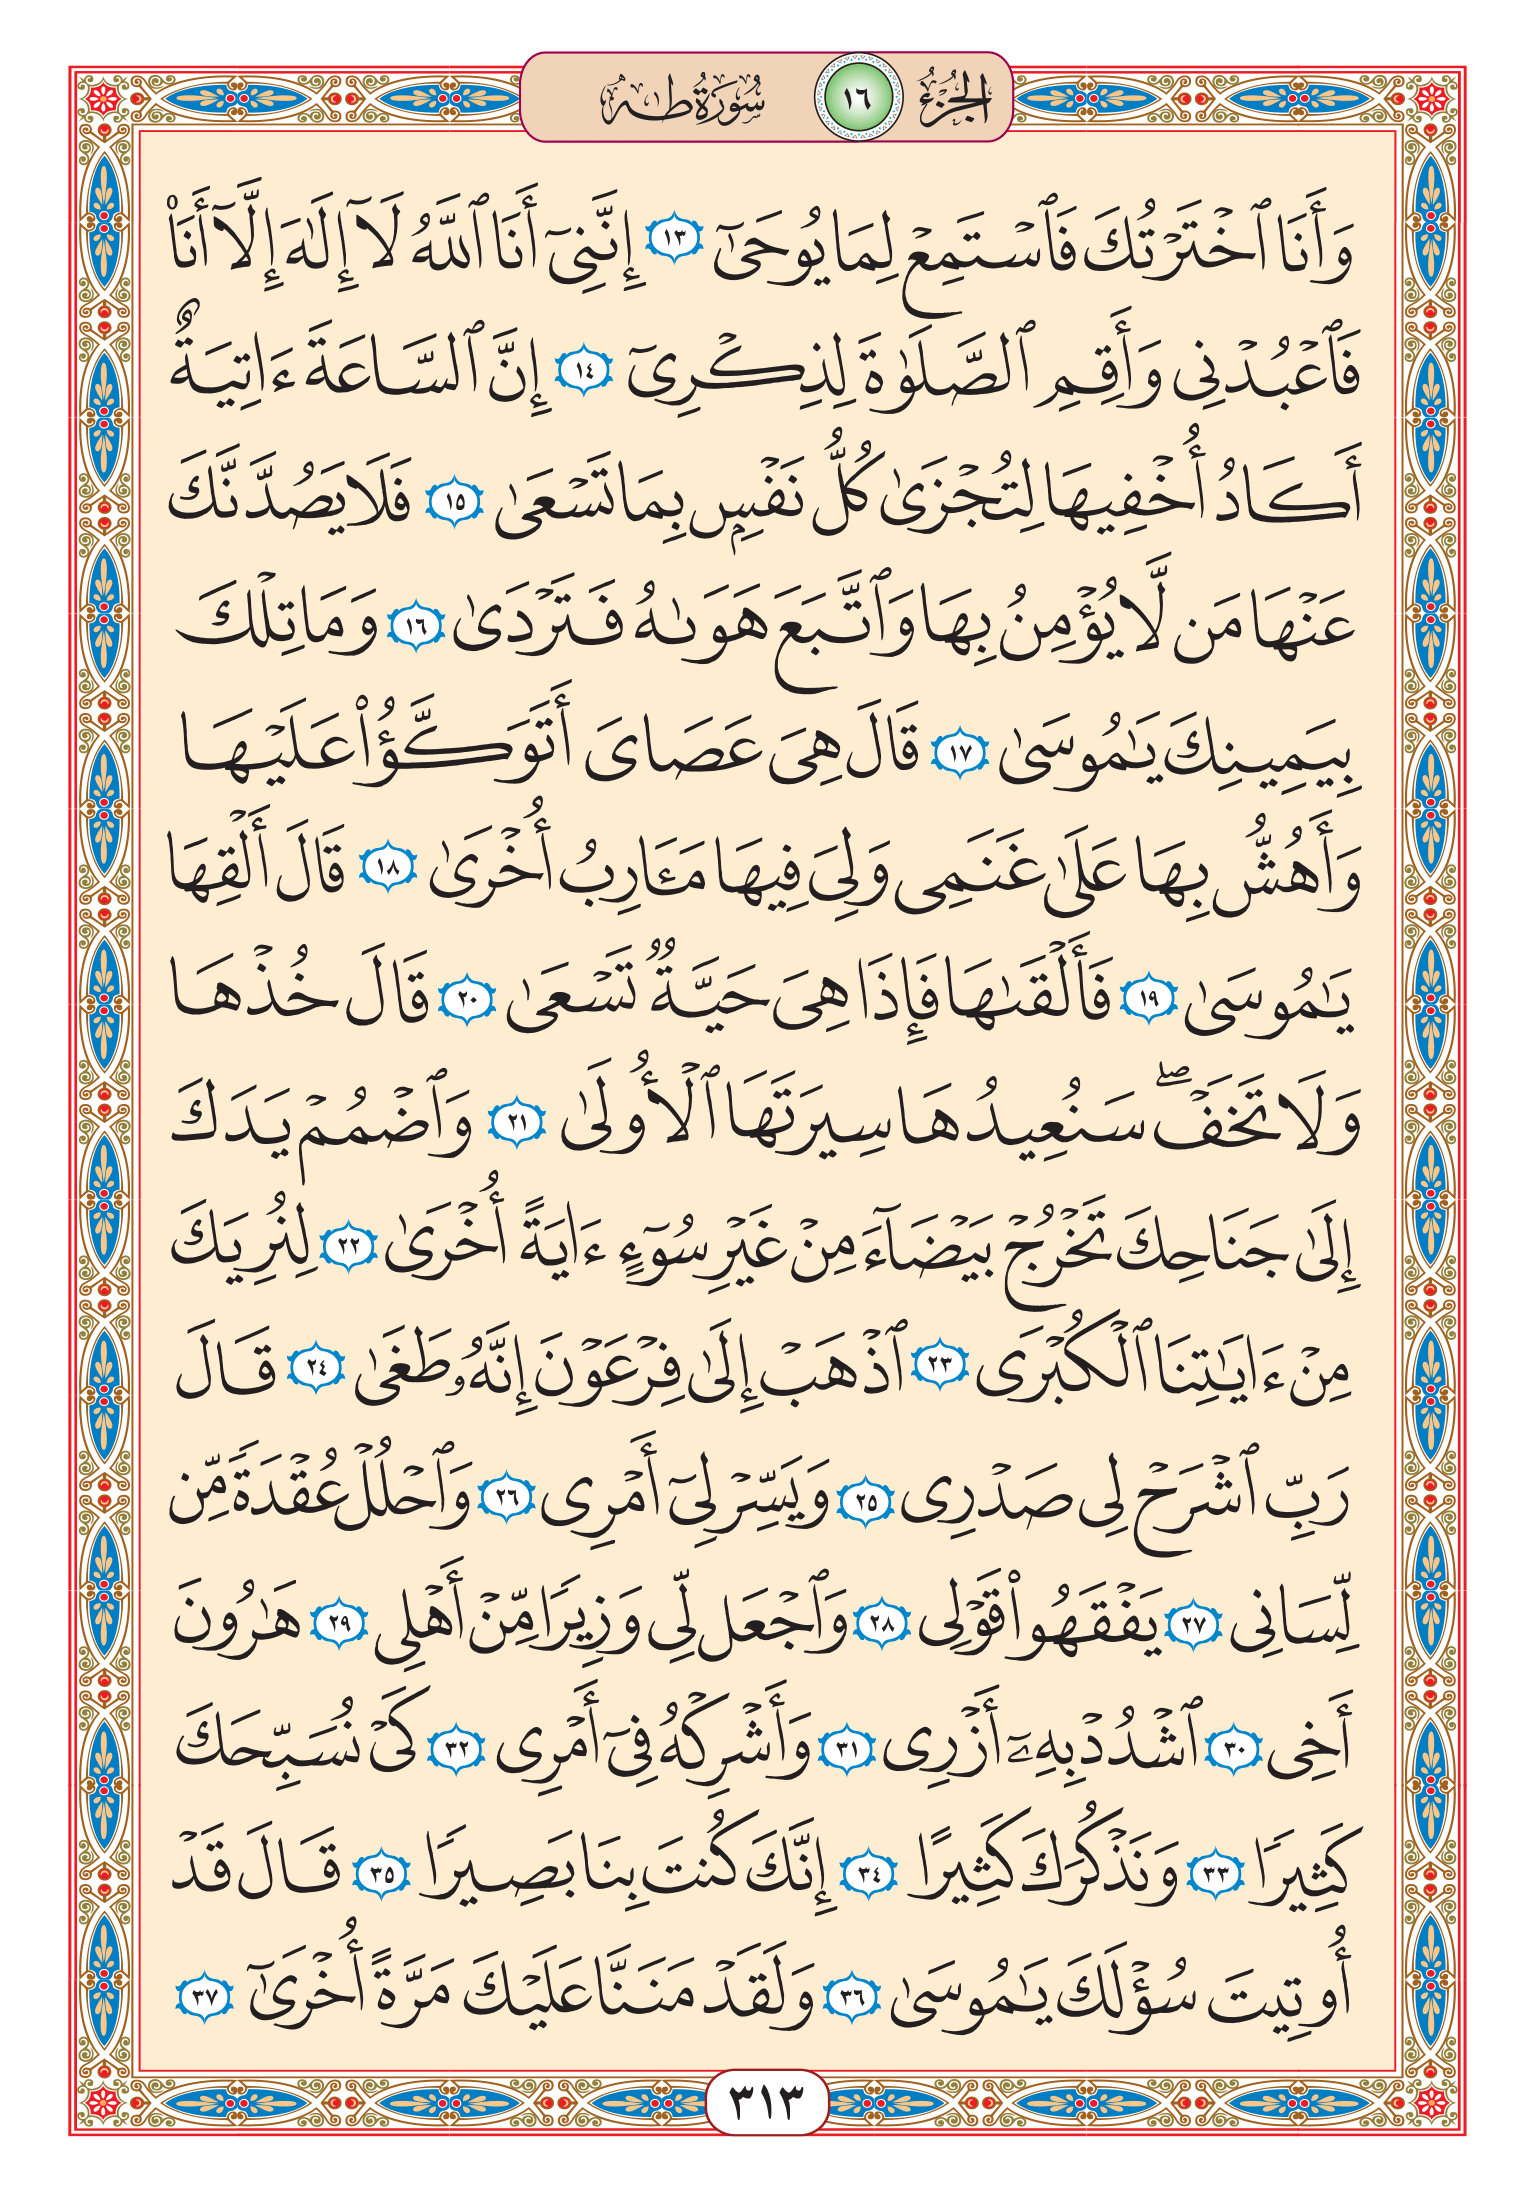 الجزء ١٦ سورة طه
وَأَنَا ٱخْتَرْتُكَ فَٱسْتَمِعْ لِمَا يُوحَىٰٓ ١٣ إِنَّنِىٓ أَنَا ٱللَّهُ لَآ إِلَٰهَ إِلَّآ أَنَا۠
فَٱعْبُدْنِى وَأَقِمِ ٱلصَّلَوٰةَ لِذِكْرِىٓ ١٤ إِنَّ ٱلسَّاعَةَ ءَاتِيَةٌ
أَكَادُ أُخْفِيهَا لِتُجْزَىٰ كُلُّ نَفْسٍۭ بِمَا تَسْعَىٰ ١٥ فَلَا يَصُدَّنَّكَ
عَنْهَا مَن لَّا يُؤْمِنُ بِهَا وَٱتَّبَعَ هَوَىٰهُ فَتَرْدَىٰ ١٦ وَمَا تِلْكَ
بِيَمِينِكَ يَٰمُوسَىٰ ١٧ قَالَ هِىَ عَصَاىَ أَتَوَكَّؤُا۟ عَلَيْهَا
وَأَهُشُّ بِهَا عَلَىٰ غَنَمِى وَلِىَ فِيهَا مَـَٔارِبُ أُخْرَىٰ ١٨ قَالَ أَلْقِهَا
يَٰمُوسَىٰ ١٩ فَأَلْقَىٰهَا فَإِذَا هِىَ حَيَّةٌ تَسْعَىٰ ٢٠ قَالَ خُذْهَا
وَلَا تَخَفْ ۖ سَنُعِيدُهَا سِيرَتَهَا ٱلْأُولَىٰ ٢١ وَٱضْمُمْ يَدَكَ
إِلَىٰ جَنَاحِكَ تَخْرُجْ بَيْضَآءَ مِنْ غَيْرِ سُوٓءٍ ءَايَةً أُخْرَىٰ ٢٢ لِنُرِيَكَ
مِنْ ءَايَٰتِنَا ٱلْكُبْرَى ٢٣ ٱذْهَبْ إِلَىٰ فِرْعَوْنَ إِنَّهُۥ طَغَىٰ ٢٤ قَالَ
رَبِّ ٱشْرَحْ لِى صَدْرِى ٢٥ وَيَسِّرْ لِىٓ أَمْرِى ٢٦ وَٱحْلُلْ عُقْدَةً مِّن
لِّسَانِى ٢٧ يَفْقَهُوا۟ قَوْلِى ٢٨ وَٱجْعَل لِّى وَزِيرًا مِّنْ أَهْلِى ٢٩ هَٰرُونَ
أَخِى ٣٠ ٱشْدُدْ بِهِۦٓ أَزْرِى ٣١ وَأَشْرِكْهُ فِىٓ أَمْرِى ٣٢ كَىْ نُسَبِّحَكَ
كَثِيرًا ٣٣ وَنَذْكُرَكَ كَثِيرًا ٣٤ إِنَّكَ كُنتَ بِنَا بَصِيرًا ٣٥ قَالَ قَدْ
أُوتِيتَ سُؤْلَكَ يَٰمُوسَىٰ ٣٦ وَلَقَدْ مَنَنَّا عَلَيْكَ مَرَّةً أُخْرَىٰٓ ٣٧
٣١٣